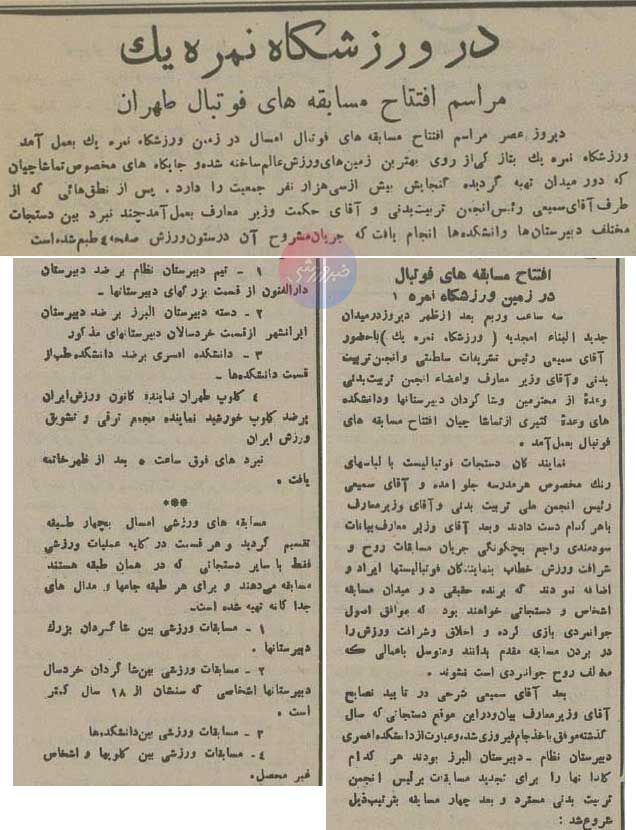 در ورزشگاه نمره یك
مراسم افتتاح مسابقه های فوتبال طهران
دیروز عصر مراسم افتتاح مسابقه های فوتبال امسال در زمین ورزشگاه نمره یك بعمل آمد
ورزشگاه نمره یك بتازگی از روی بهترین زمین‌های ورزش عالم ساخته شده و جایگاه های مخصوص تماشاچیان
که دور میدان تهیه گردیده گنجایش بیش از سی هزار نفر جمعیت را دارد. پس از نطق‌هائی که از
طرف آقای سمیعی رئیس انجمن تربیت بدنی و آقای حکمت وزیر معارف بعمل آمد چند نبرد بین دستجات
مختلف دبیرستان‌ها و دانشکده‌ها انجام یافت که جریان مشروح آن در ستون ورزش صفحه ٤ طبع شده است
خبرورزشی
افتتاح مسابقه های فوتبال
در زمین ورزشگاه نمره ۱
سه ساعت و ربع بعد از ظهر دیروز در میدان
جدید البناء امجدیه (ورزشگاه نمره یك) با حضور
آقای سمیعی رئیس تشریفات سلطنتی و انجمن تربیت
بدنی و آقای وزیر معارف و اعضاء انجمن تربیت بدنی
و عدۀ از محترمین و شاگردان دبیرستانها و دانشکده
های و عدۀ کثیری از تماشا چیان افتتاح مسابقه های
فوتبال بعمل آمد .
نمایند گان دستجات فوتبالیست با لباسهای
رنك مخصوص هر مدرسه جلو آمده و آقای سمیعی
رئیس انجمن ملی تربیت بدنی و آقای وزیر معارف
با هر کدام دست دادند و بعد آقای وزیر معارف بیانات
سودمندی راجع بچگونگی جریان مسابقات روح و
شرافت ورزش خطاب بنمایندگان فوتبالیستها ایراد و
اضافه نمو دند که برنده حقیقی در میدان مسابقه
اشخاص و دستجاتی خواهند بود که موافق اصول
جوانمردی بازی کرده و اخلاق و شرافت ورزش را
در بردن مسابقه مقدم بدانند ومتوسل باعمالی که
مخالف روح جوانمردی است نشوند .
بعد آقای سمیعی شرحی در تایید نصایح
آقای وزیر معارف بیان و در این موقع دستجاتی که سال
گذشته موفق باخذ جام فیروزی شده و عبارت از دانشکده افسری
دبیرستان نظام - دبیرستان البرز بودند هر کدام
کاپ آنها را برای تجدید مسابقات برئیس انجمن
تربیت بدنی مسترد و بعد چهار مسابقه بترتیب ذیل
شروع شد :
۱ - تیم دبیرستان نظام بر ضد دبیرستان
دارالفنون از قسمت بزرگهای دبیرستانها -
۲ - دسته دبیرستان البرز بر ضد دبیرستان
ایرانشهر از قسمت خردسالان دبیرستانهای مذکور
۳ - دانشکده افسری بر ضد دانشکده طب از
قسمت دانشکده‌ها -
٤ کلوپ طهران نماینده کانون ورزش ایران
بر ضد کلوپ خورشید نماینده مجمع ترقی و تشویق
ورزش ایران
نبرد های فوق ساعت ٥ بعد از ظهر خاتمه
یافت .
***
مسابقه های ورزشی امسال بچهار طبقه
تقسیم گردید و هر قسمت در کلیه عملیات ورزشی
فقط با سایر دستجاتی که در همان طبقه هستند
مسابقه می‌دهند و برای هر طبقه جامها و مدال های
جدا گانه تهیه شده است -
۱ - مسابقات ورزشی بین شاگردان بزرك
دبیرستانها .
۲ - مسابقات ورزشی بین شا گردان خردسال
دبیرستانها اشخاصی که سنشان از ۱۸ سال کمتر
است .
۳ - مسابقات ورزشی بین دانشکده‌ها
٤ - مسابقات ورزشی بین کلوپها و اشخاص
غیر محصل .